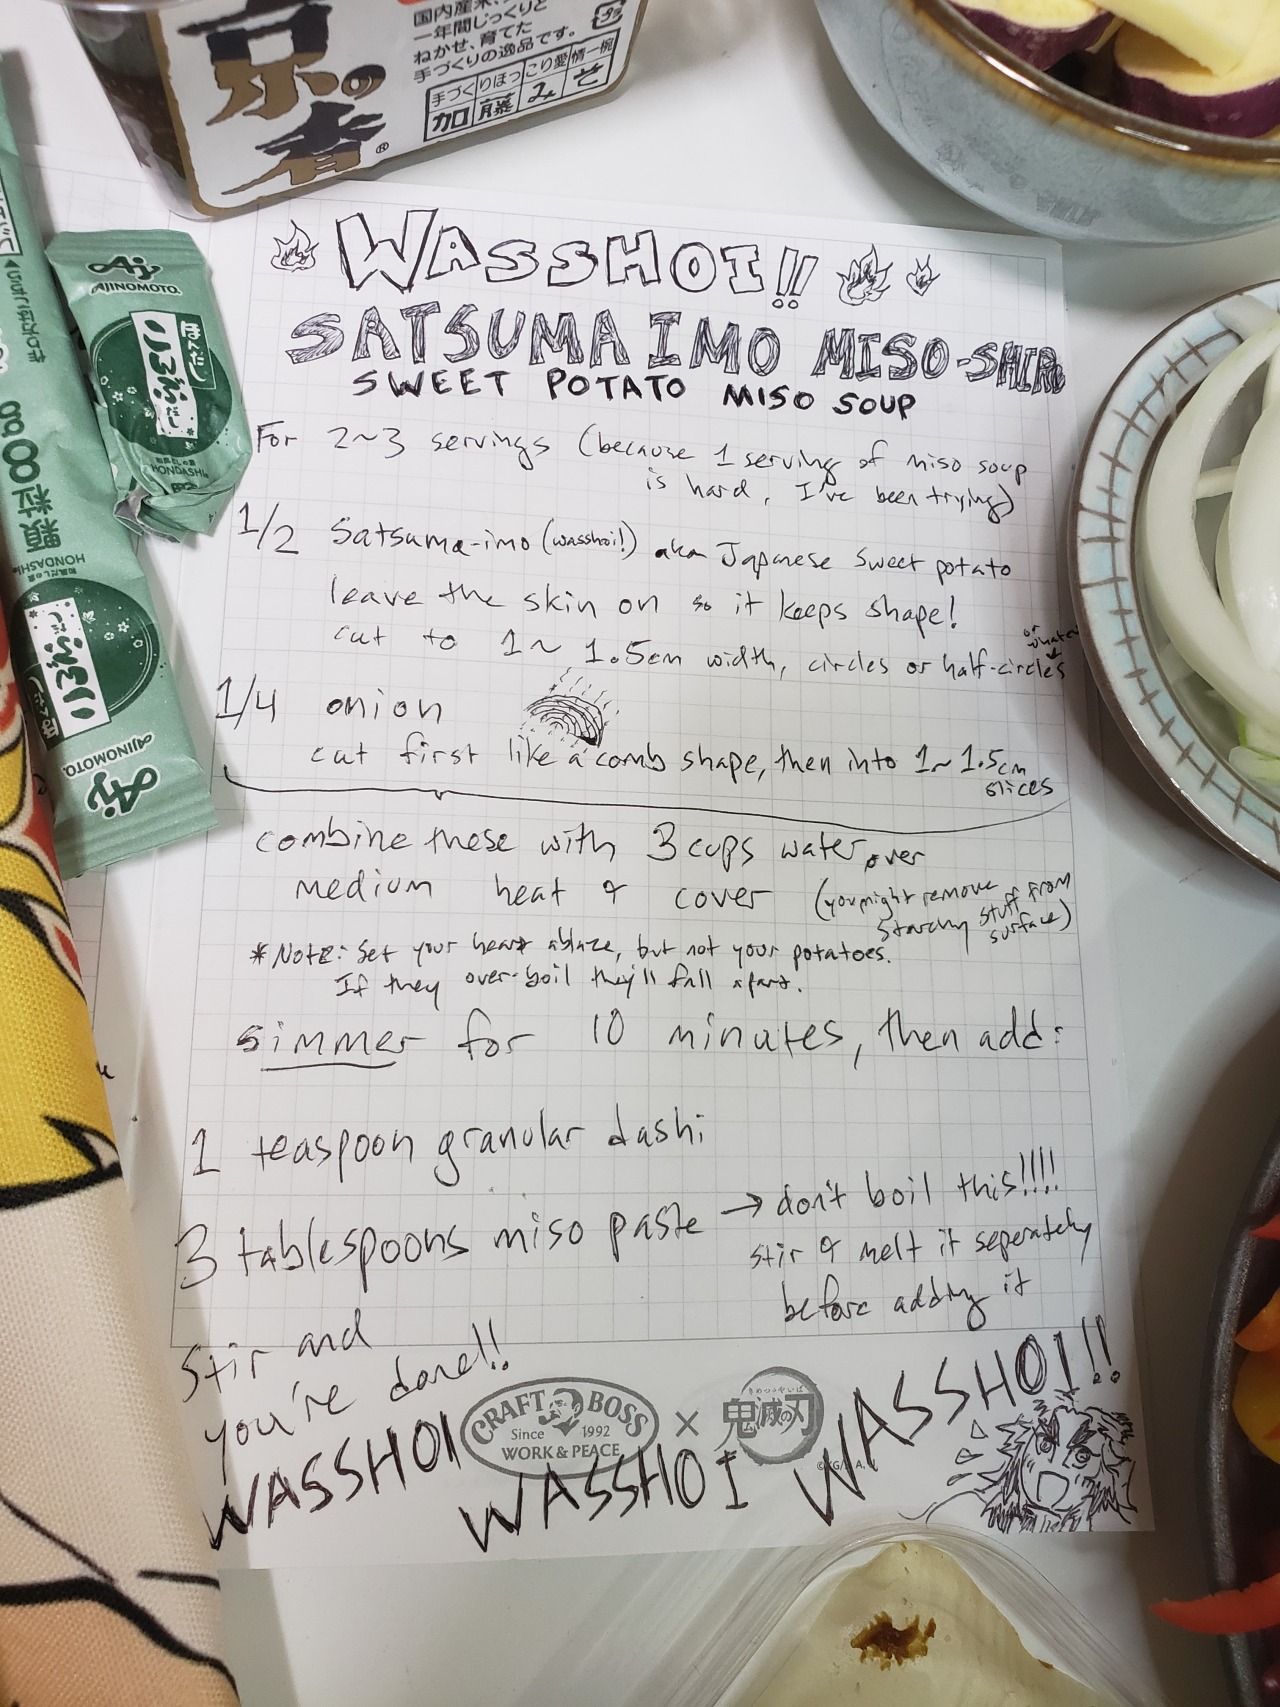 京の
者®
国内産米、
一年間じっくりと
ねかせ、育てた
手づくりの逸品です。
手づくりほっこり愛情一椀
加藤みそ
Aji
AJINOMOTO
ほんだし
こんぶだし
HONDASHI
8g
顆粒
HONDASHI
こんぶだし
ほんだし
AJINOMOTO
Aji
WASSHOI!!
SATSUMAIMO MISO-SHIRU
SWEET POTATO MISO SOUP
For 2~3 servings (because 1 serving of miso soup
is hard, I've been trying)
1/2 Satsuma-imo (wasshoi!) aka Japanese sweet potato
leave the skin on so it keeps shape!
cut to 1~1.5cm width, circles or half-circles
or whatev
1/4 onion
cut first like a comb shape, then into 1~1.5cm
slices
combine these with 3 cups water, over
medium heat & cover (you might remove
starchy stuff from
surface)
*NOTE: Set your heart ablaze, but not your potatoes.
If they over-boil they'll fall apart.
simmer for 10 minutes, then add:
1 teaspoon granular dashi
3 tablespoons miso paste → don't boil this!!!!
stir & melt it seperately
before adding it
Stir and
you're done!!
CRAFT BOSS
Since 1992
WORK & PEACE
×
きめつのやいば
鬼滅の刃
WASSHOI
WASSHOI
WASSHOI!!